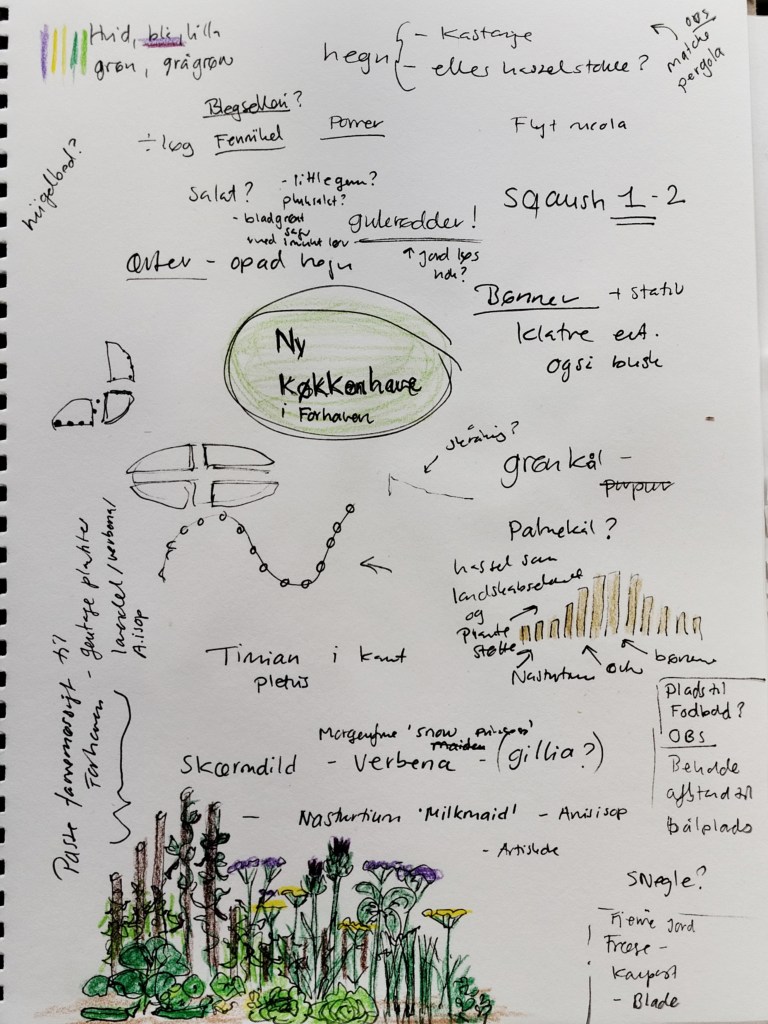 Hvid, blå, lilla
grøn, grågrøn
hegn
- Kastanje
- eller hasselstokke?
OBS
matche
pergola
Blegselleri?
÷ løg
Fennikel
Porrer
Flyt rucola
højbed?
Salat?
- little gem?
pluksalat?
- bladgrønt
med smukt løv
gulerødder!
Squash 1-2
Ærter - opad hegn
↑ jord løs
nok?
Bønner + stativ
Klatre ert.
også busk
Ny
Køkkenhave
i Forhaven
skråning?
grønkål -
purpur
Palmekål?
hassel som
landskabselement
og
Plante
støtte
Nasturtium
och
bønner
Passe farvemæssigt til
Forhaven - gentage planter
lavendel/verbena/
A.isop
Timian i kant
Plads til
Fodbold?
OBS
Beholde
afstand til
bålplads
Morgenfrue 'snow princess'
Skærmdild - Verbena - (gillia?)
- Nasturtium 'Milkmaid' - Anisisop
- Artiskok
Snegle?
Fjerne jord
Fræse -
Kompost
- Blade